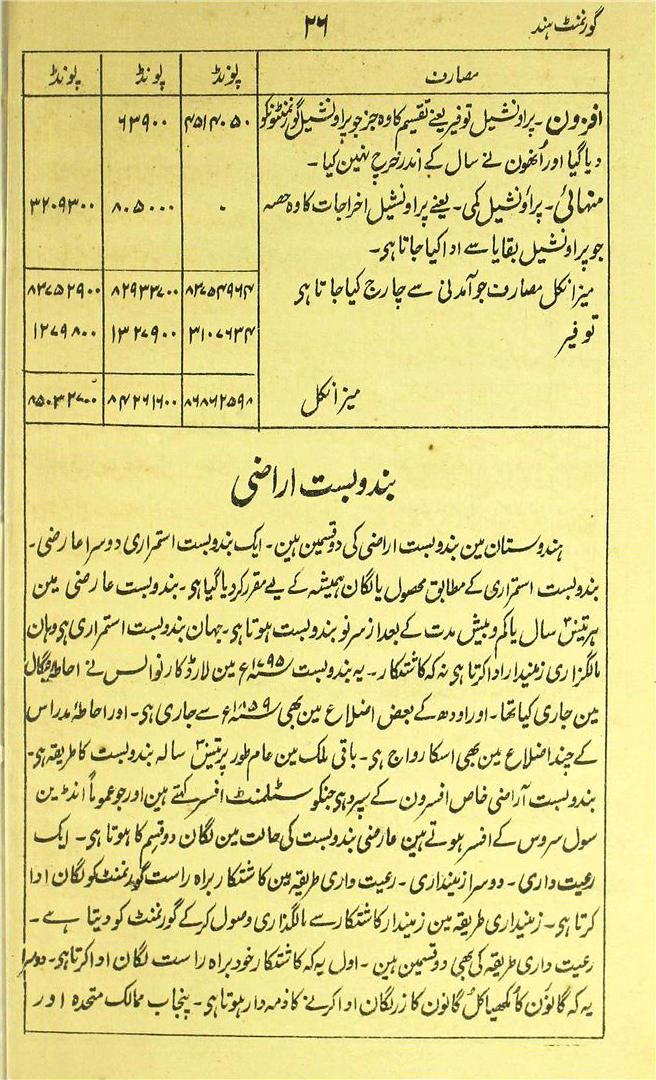 گورنمنٹ ہند ۲۶
مصارف پونڈ پونڈ پونڈ
افزون ۔ پراونشیل توفیر یعنے تقسیم کا وہ جز جو پراونشیل گورنمنٹونکو ۴۵۱۴۰۵۰ ۶۳۹۰۰
دیا گیا اور اُنھون نے سال کے اندر خرچ نہین کیا ۔
منہائی ۔ پراونشیل کمی ۔ یعنے پراونشیل اخراجات کا وہ حصہ ۰ ۸۰۵۰۰۰ ۳۲۰۹۳۰۰
جو پراونشیل بقایا سے ادا کیا جاتا ہی ۔
میزانکل مصارف جو آمدنی سے چارج کیا جاتا ہی ۸۳۷۵۴۹۶۴ ۸۲۹۳۳۷۰۰ ۸۳۷۵۲۹۰۰
توفیر ۳۱۰۷۶۳۴ ۱۳۲۷۹۰۰ ۱۲۷۹۸۰۰
میزانکل ۸۶۸۶۲۵۹۸ ۸۴۲۶۱۶۰۰ ۸۵۰۳۲۷۰۰
بندوبست اراضی
ہندوستان مین بندوبست اراضی کی دو قسمین ہین ۔ ایک بندوبست استمراری دوسرا عارضی ۔
بندوبست استمراری کے مطابق محصول یا لگان ہمیشہ کے لیے مقرر کر دیا گیا ہی ۔ بندوبست عارضی مین
ہر تیس۳۰ سال یا کم و بیش مدت کے بعد از سر نو بندوبست ہوتا ہی ۔ جہان بندوبست استمراری ہی وہان
مالگزاری زمیندار ادا کرتا ہی نہ کہ کاشتکار ۔ یہ بندوبست ۱۷۹۵ء مین لارڈ کارنوالس نے احاطۂ بنگال
مین جاری کیا تھا ۔ اور اودھ کے بعض اضلاع مین بھی ۱۸۵۹ء سے جاری ہی ۔ اور احاطۂ مدراس
کے چند اضلاع مین بھی اسکا رواج ہی ۔ باقی ملک مین عام طور پر تیس۳۰ سالہ بندوبست کا طریقہ ہی ۔
بندوبست آراضی خاص افسرون کے سپرد ہی جنکو سٹلمنٹ افسر کہتے ہین اور جو عموماً انڈین
سول سروس کے افسر ہوتے ہین عارضی بندوبست کی حالت مین لگان دو قسم کا ہوتا ہی ۔ ایک
رعیت واری ۔ دوسرا زمینداری ۔ رعیت واری طریقہ مین کاشتکار براہ راست گورنمنٹ کو لگان ادا
کرتا ہی ۔ زمینداری طریقہ مین زمیندار کاشتکار سے مالگذاری وصول کرکے گورنمنٹ کو دیتا ہے ۔
رعیت داری طریقہ کی بھی دو قسمین ہین ۔ اول یہ کہ کاشتکار خود براہ راست لگان ادا کرتا ہی ۔ دوسرا
یہ کہ گانوُن کا مُکھیا کل گانون کا زر لگان ادا کرنے کا ذمہ دار ہوتا ہی ۔ پنجاب ممالک متحدہ اور